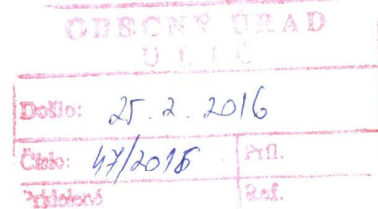 OBECNÝ ÚRAD
ULIČ
Došlo: 25. 2. 2016
Číslo: 47/2016 Príl.
Pridelené Ref.